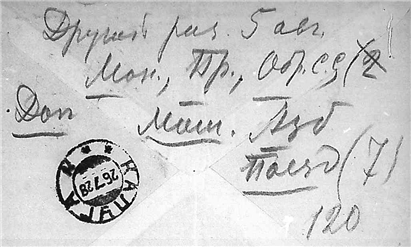 Другой раз. 5 авг.
Мон., Пр., Обр. сд (2
Доп Мат. Азб
Поезд (7)
120
26.7.28